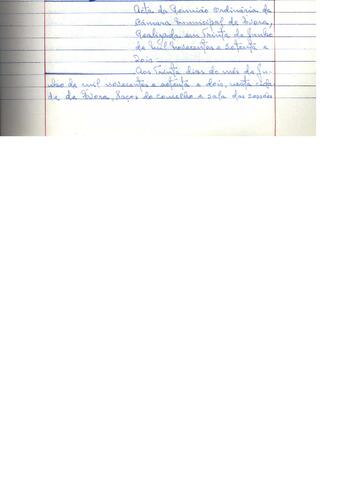 Acta da Reunião Ordinária da
Câmara Municipal de Évora,
Realizada em Trinta de Junho
de Mil Novecentos e Setenta e
Dois.
Aos Trinta dias do mês de Ju-
nho de mil novecentos e setenta e dois, nesta cida
de de Évora, Paços do concelho e sala das sessões